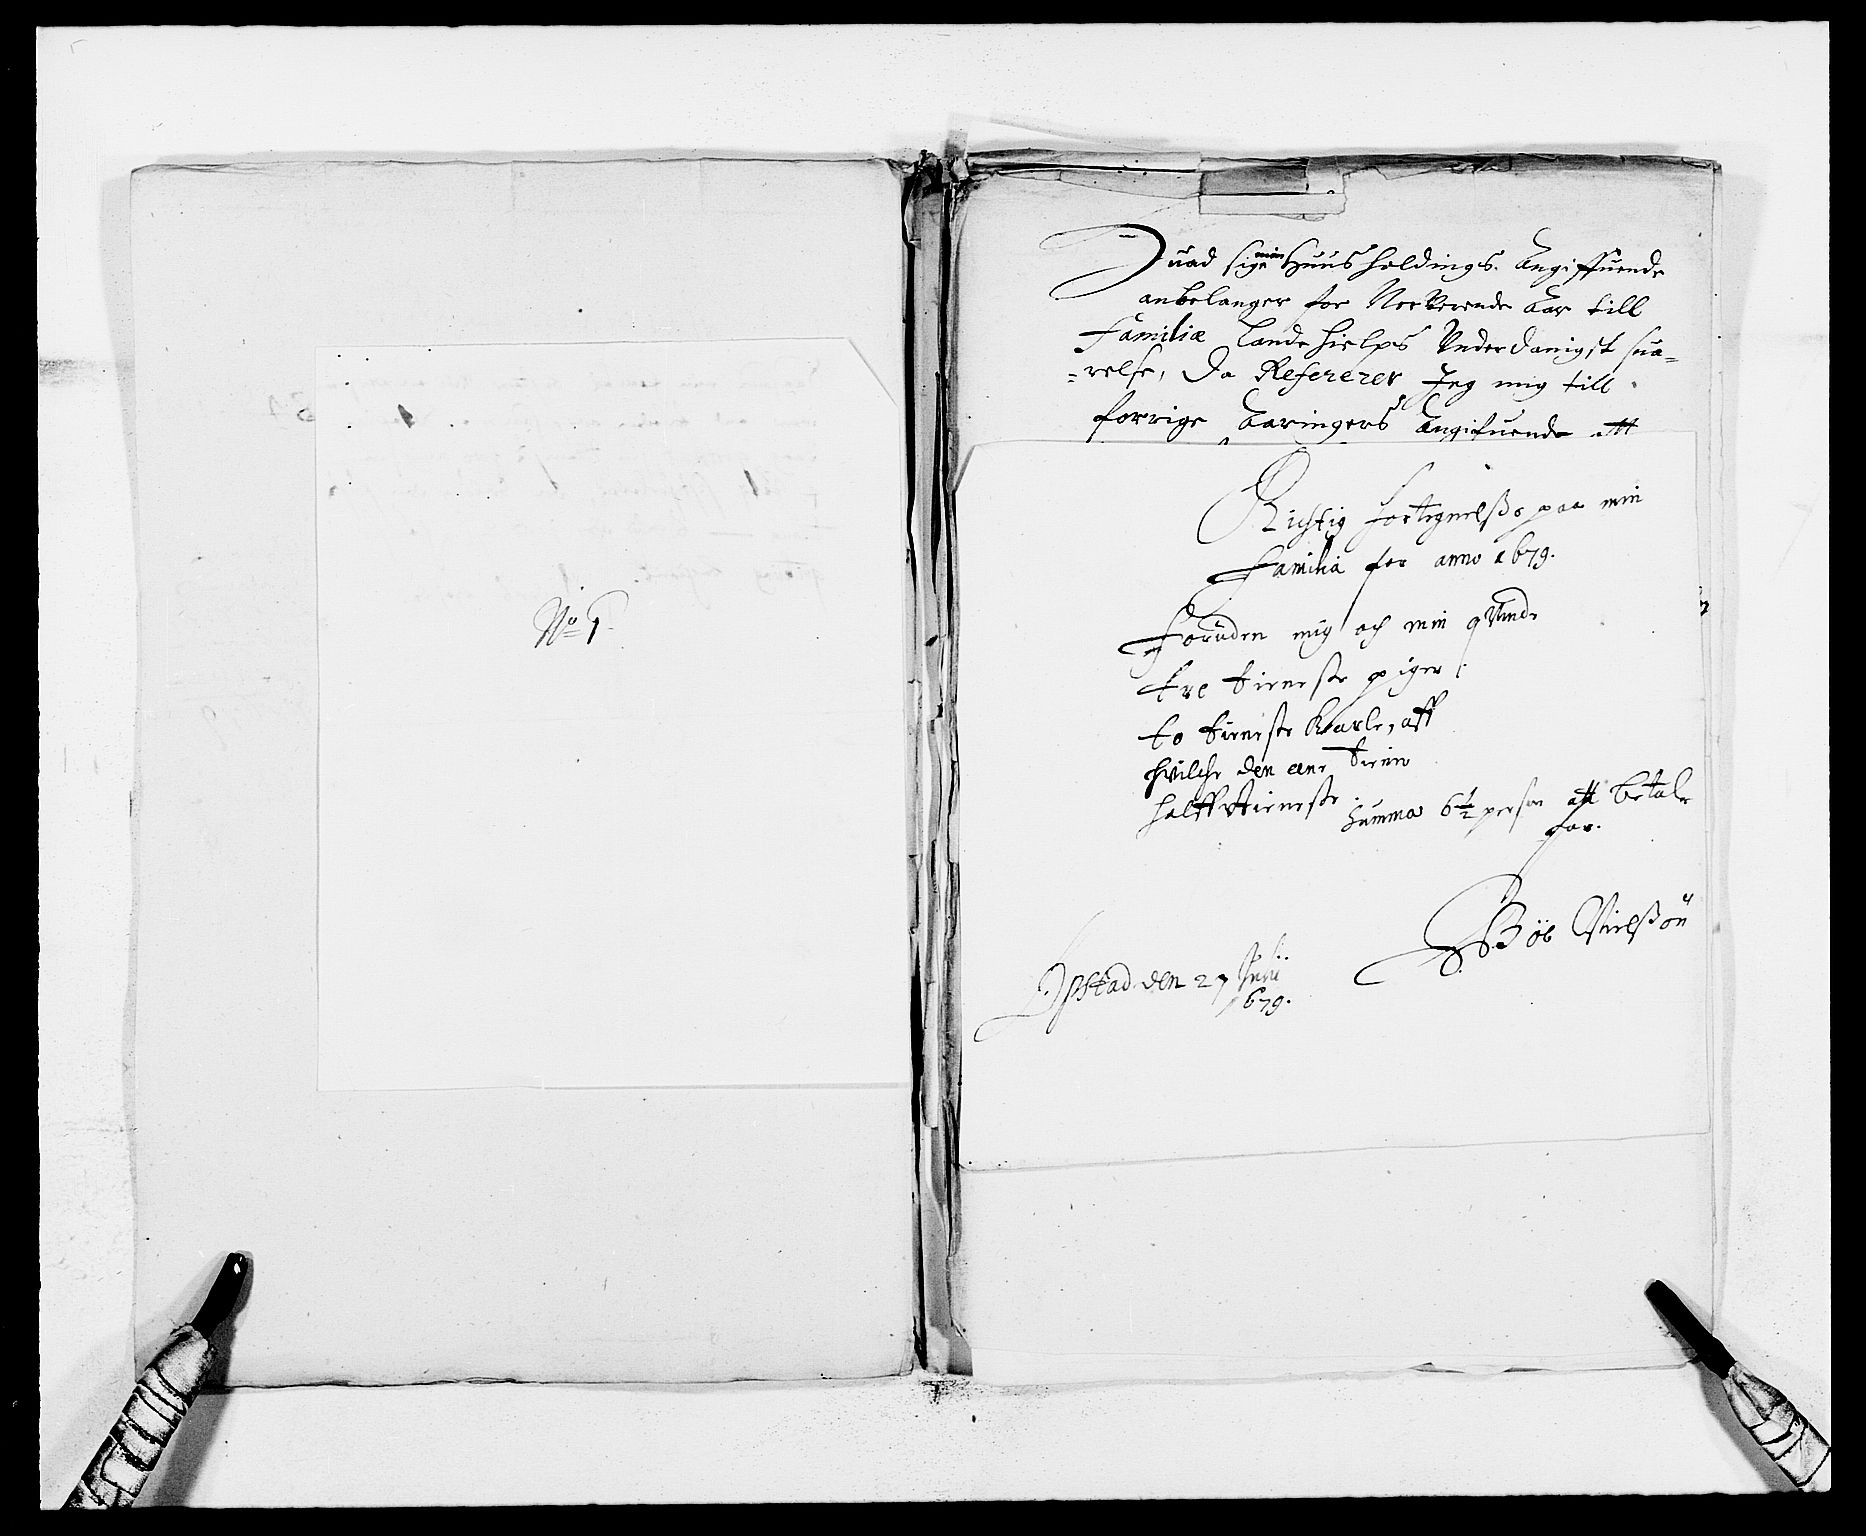 No 7.
Huad sig min Huusholdings Angiffuende
anbelanger for Nerverende Aar till
Familiæ Lande hielps Underdanigst sua-
-relse, Da Refererer Jeg mig till
forrige Aaringers Angifuende att
Richtig fortegnelsse paa min
Familia for anno 1679.
Foruden mig och min quinde
tre tieniste piger
to tieniste Karle, aff
huilche den eene tiener
halff tieniste. Summa 6½ person att betale
for.
Nielssøn
den 27 Juli
1679.